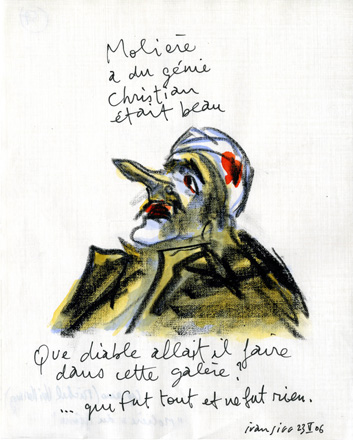 Molière
a du génie
Christian
était beau
Que diable allait il faire
dans cette galère?
... qui fut tout et ne fut rien.
23 V 06